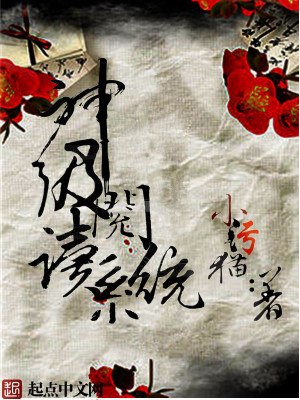 神级閱读系统
小污猫::著
起点中文网